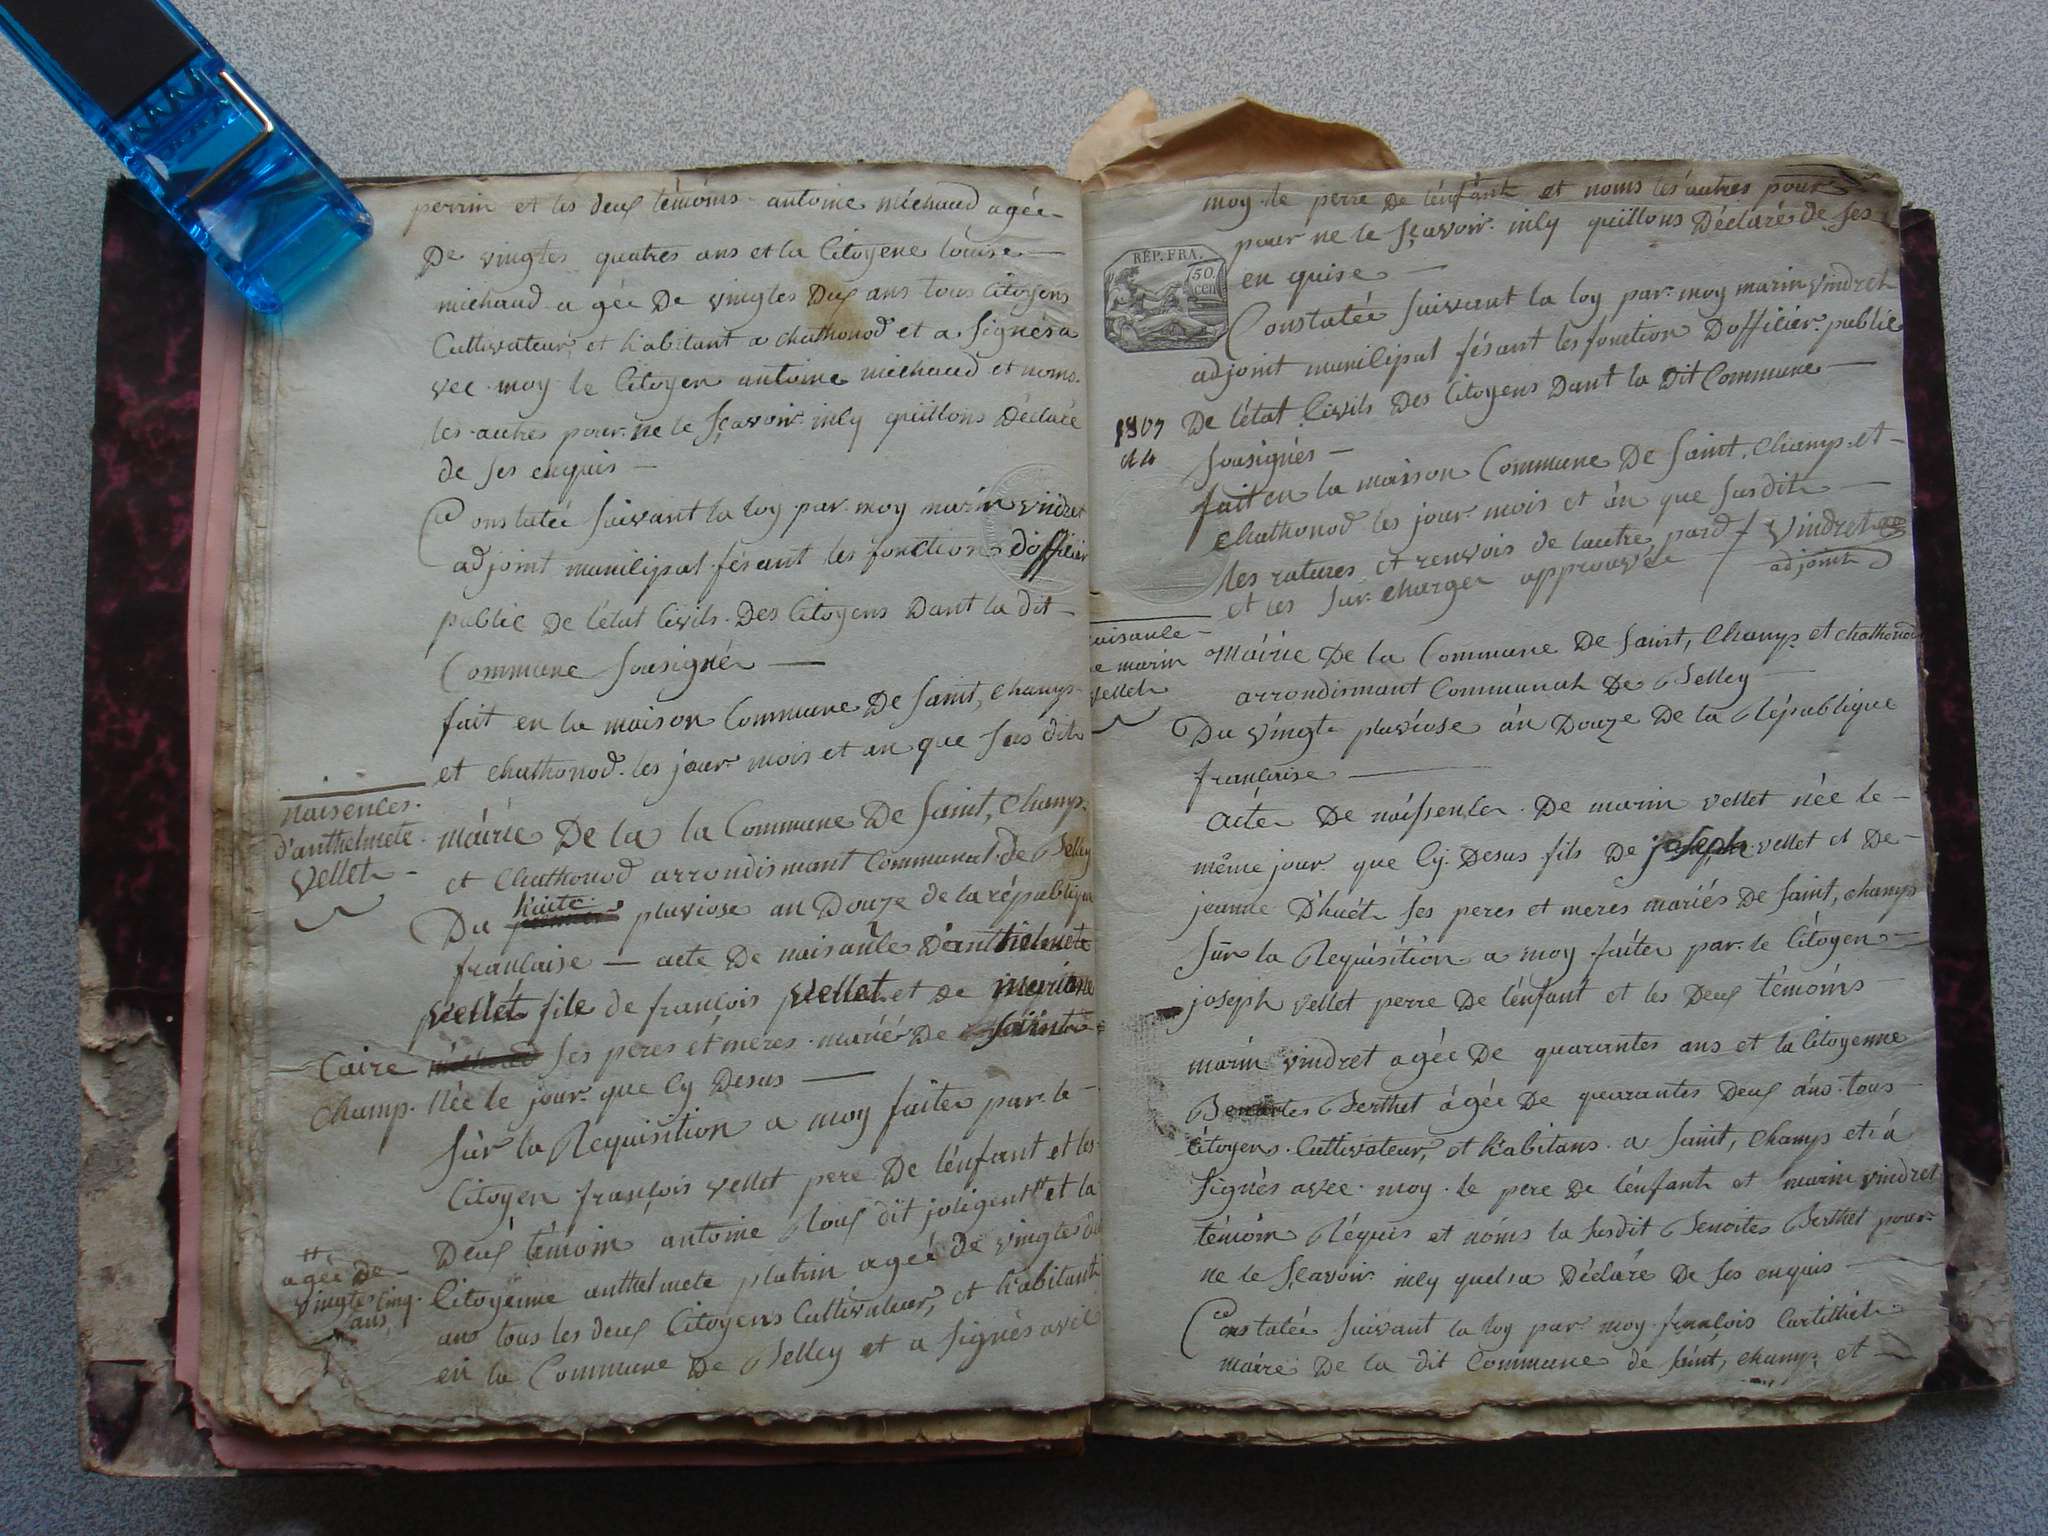 perrin et les deux témoins antoine michaud agée
De vingtes quatres ans et la Citoyene louise
michaud agée De vingtes Deux ans tous Citoyens
Cultivateur, et habitant a chathonod et a Signés a
vec moy le Citoyen antoine michaud et noms
les autres pour ne le sçavoir inly quillons Déclaré
de ses enquis
Constatée suivant la loy par moy marin vindret
adjoint municipal fésant les fonctions doffilier
public De létat Civils Des Citoyens Dant la dit
Commune sousignée
fait en la maison Commune De saint, champ
et chathonod les jour mois et an que sus dit
naisences
d'anthelmete
vellet
mairie De la la Commune De saint, champ
et chathonod arrondismant Communal de Belley
huite
Du pluviose an Douze de la républiqu
française — acte De naisance D'anthelmete
vellet file de françois vellet et De mariane
Caire ses peres et meres marié De saint
champ. Née le jour que Cy Desus
sur la Requisition a moy faites par le
Citoyen françois vellet pere De lénfant et les
Deux témoin antoine Roux dit joligent # et la
Citoyenne anthelmete platin agée de vingtes
#
agée de
vingtes Cinq
ans
ans tous les deux Citoyens Cultivateur, et habitant
en la Commune De Belley et a signés avec
moy le perre De lénfant et noms les autres pour
pour ne le sçavoir inly quillons Déclaré de ses
en quise
RÉP. FRA.
50
cen
Constatée suivant la loy par moy marin vindret
adjoint municipal fésant les fonction Doffilier public
1807
De létat Civils Des Citoyens Dant la Dit Commune
sousignés
fait en la maison Commune De saint, champ et
chathonod les jour mois et an que susdit
les ratures et renvois de lautre pard vindret
et les sur charger approuvée adjoint
naisance
de marin
vellet
Mairie De la Commune De saint, champ et chathonod
arrondismant Communal De Belley
Du vingt pluviose an Douze De la République
française
acte De naissence De marin vellet née le
même jour que Cy Desus fils De joseph vellet et De
jeanne D'huét ses peres et meres mariés De saint, champ
sur la Requisition a moy faites par le Citoyen
joseph vellet perre De lénfant et les Deux témoins
marin vindret agée De quarantes ans et la Citoyenne
Benoites Berthet ágée De quarantes Deux ans tous
Citoyens Cultivateur, et habitans a saint, champ et á
signés avec moy le pere De lénfant et marin vindret
témoin Réquis et noms la susdit Benoites Berthet pour
ne le sçavoir inly quel a Déclaré De ses enquis
Constatée suivant la loy par moy françois
maire De la dit Commune de saint, champ et